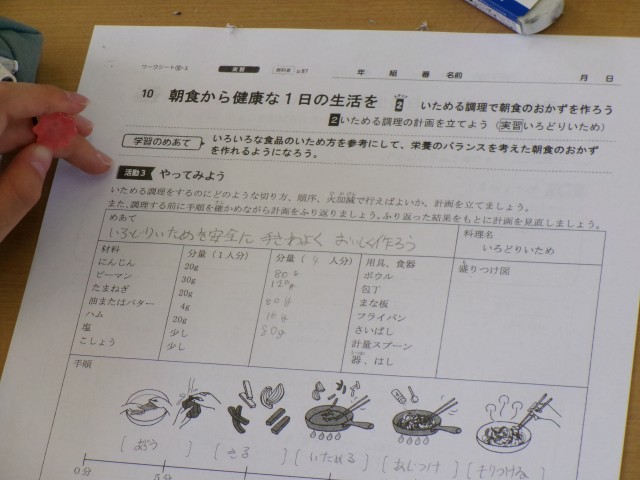 ワークシート 実習 教科書 年 組 番 名前 月 日
10 朝食から健康な1日の生活を 2 いためる調理で朝食のおかずを作ろう
2 いためる調理の計画を立てよう(実習 いろどりいため)
学習のめあて いろいろな食品のいため方を参考にして、栄養のバランスを考えた朝食のおかず
を作れるようになろう。
活動3 やってみよう
いためる調理をするのにどのような切り方、順序、火加減で行えばよいか、計画を立てましょう。
また、調理する前に手順を確かめながら計画をふり返りましょう。ふり返った結果をもとに計画を見直しましょう。
めあて 料理名
いろどりいためを安全に 手ぎわよく おいしく作ろう いろどりいため
材料 分量(1人分) 分量( 4 人分) 用具、食器 盛りつけ図
にんじん 20g 80g ボウル
ピーマン 30g 120g 包丁
たまねぎ 20g 80g まな板
油またはバター 4g 16g フライパン
ハム 20g 80g さいばし
塩 少し 計量スプーン
こしょう 少し 器、はし
手順
[あらう] [きる] [いためる] [あじつけ] [もりつける]
0分 5分